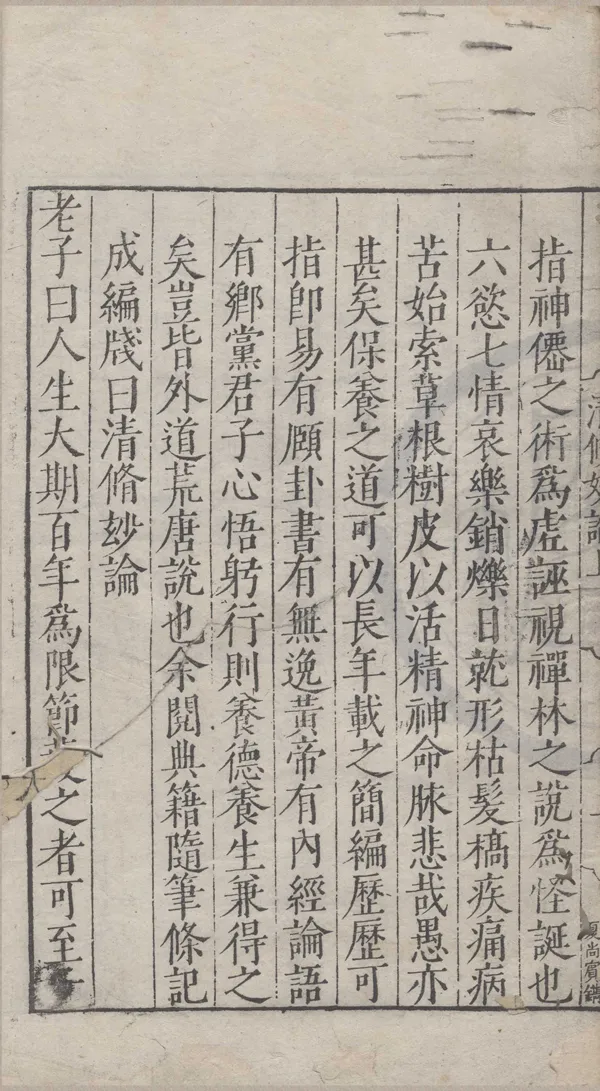 清脩妙論上
夏尚寳鐫
指神僊之術爲虛誣視禪林之說爲怪誕也
六慾七情哀樂銷爍日就形枯髮槁疾痛病
苦始索草根樹皮以活精神命脉悲哉愚亦
甚矣保養之道可以長年載之簡編歷歷可
指卽易有頥卦書有無逸黃帝有內經論語
有鄉黨君子心悟躬行則養德養生兼得之
矣豈皆外道荒唐說也余閱典籍隨筆條記
成編牋曰清脩玅論
老子曰人生大期百年爲限節護之者可至千